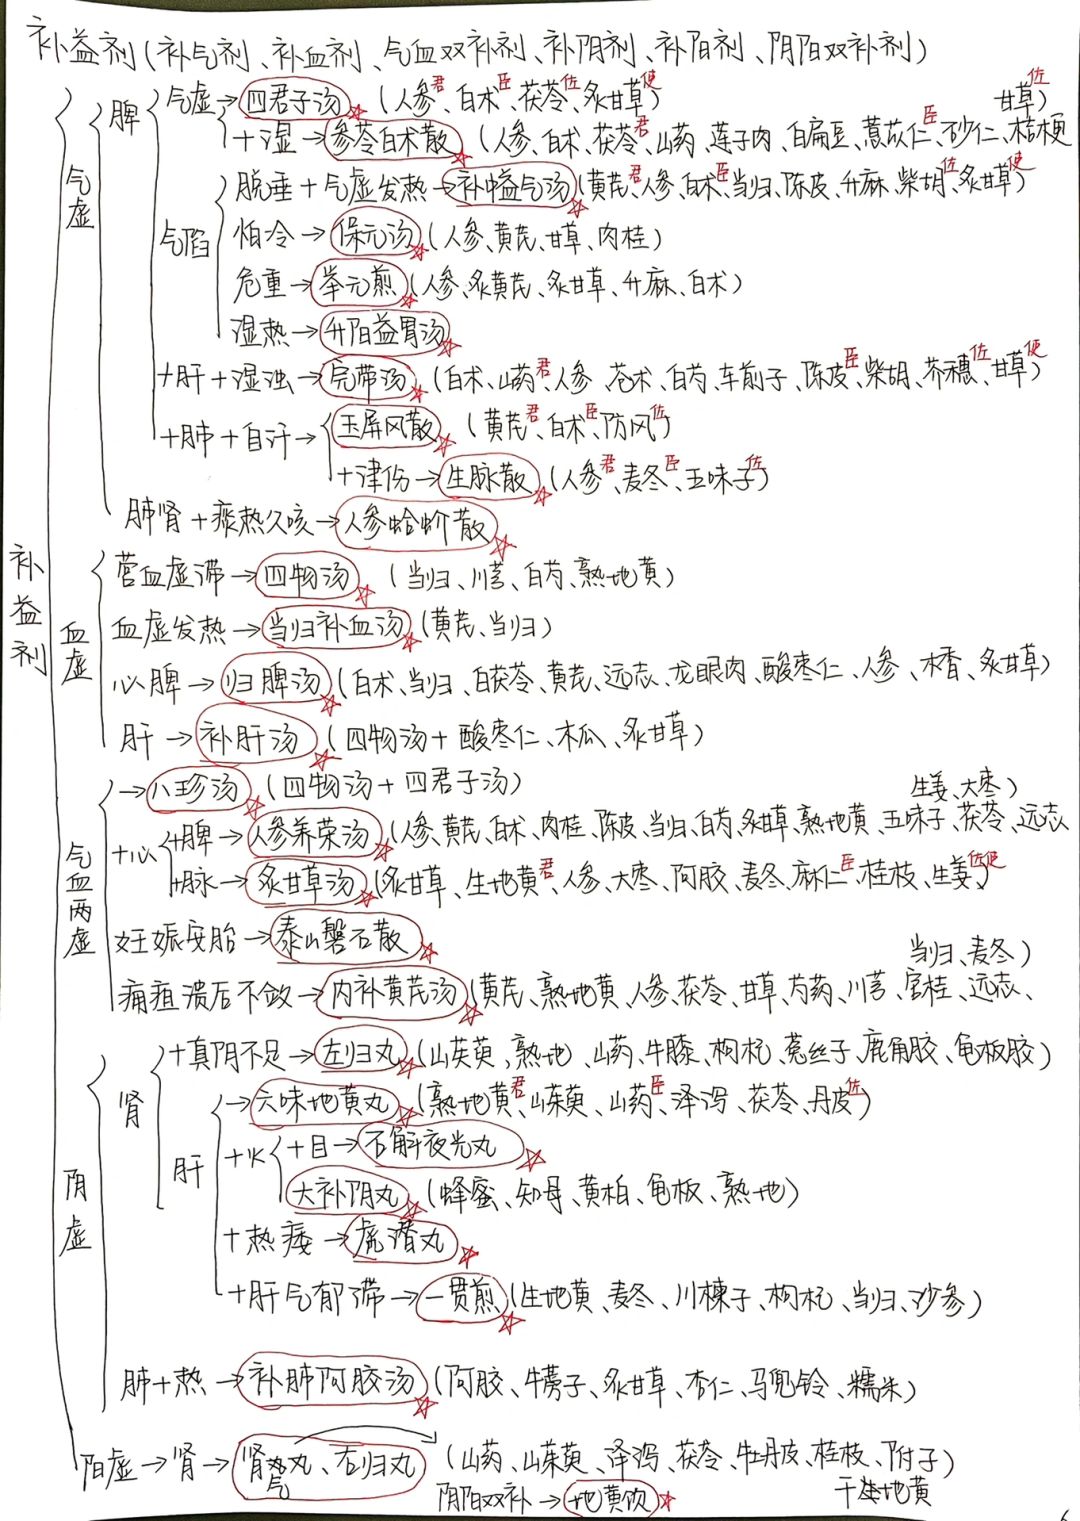 补益剂(补气剂、补血剂、气血双补剂、补阴剂、补阳剂、阴阳双补剂)
补益剂
气虚
脾
气虚→四君子汤 (人参君、白术臣、茯苓佐、炙甘草使)
甘草佐)
+湿→参苓白术散 (人参、白术、茯苓君、山药、莲子肉、白扁豆、薏苡仁臣、砂仁、桔梗
气陷
脱垂+气虚发热→补中益气汤(黄芪君、人参、白术臣、当归、陈皮、升麻、柴胡佐、炙甘草使)
怕冷→保元汤(人参、黄芪、甘草、肉桂)
危重→举元煎(人参、炙黄芪、炙甘草、升麻、白术)
湿热→升阳益胃汤
+肝+湿浊→完带汤 (白术、山药君、人参、苍术、白芍、车前子、陈皮臣、柴胡、芥穗佐、甘草使)
+肺+自汗→玉屏风散 (黄芪君、白术臣、防风佐)
+津伤→生脉散(人参君、麦冬臣、五味子佐)
肺肾+痰热久咳→人参蛤蚧散
血虚
营血虚滞→四物汤 (当归、川芎、白芍、熟地黄)
血虚发热→当归补血汤(黄芪、当归)
心脾→归脾汤 (白术、当归、白茯苓、黄芪、远志、龙眼肉、酸枣仁、人参、木香、炙甘草)
肝→补肝汤 (四物汤+酸枣仁、木瓜、炙甘草)
气血两虚
→八珍汤 (四物汤+四君子汤)
生姜、大枣)
+心
+脾→人参养荣汤(人参、黄芪、白术、肉桂、陈皮、当归、白芍、炙甘草、熟地黄、五味子、茯苓、远志
+脉→炙甘草汤(炙甘草、生地黄君、人参、大枣、阿胶、麦冬、麻仁臣、桂枝、生姜佐使)
妊娠安胎→泰山磐石散
当归、麦冬)
痈疽溃后不敛→内补黄芪汤(黄芪、熟地黄、人参、茯苓、甘草、芍药、川芎、官桂、远志、
阴虚
肾
+真阴不足→左归丸(山茱萸、熟地、山药、牛膝、枸杞、菟丝子、鹿角胶、龟板胶)
肝
→六味地黄丸 (熟地黄君、山茱萸、山药臣、泽泻、茯苓、丹皮佐)
+火
+目→石斛夜光丸
大补阴丸 (蜂蜜、知母、黄柏、龟板、熟地)
+热痿→虎潜丸
+肝气郁滞→一贯煎(生地黄、麦冬、川楝子、枸杞、当归、沙参)
肺+热→补肺阿胶汤(阿胶、牛蒡子、炙甘草、杏仁、马兜铃、糯米)
阳虚→肾→肾气丸、右归丸 (山药、山茱萸、泽泻、茯苓、牡丹皮、桂枝、附子)
干生地黄
阴阳双补→地黄饮